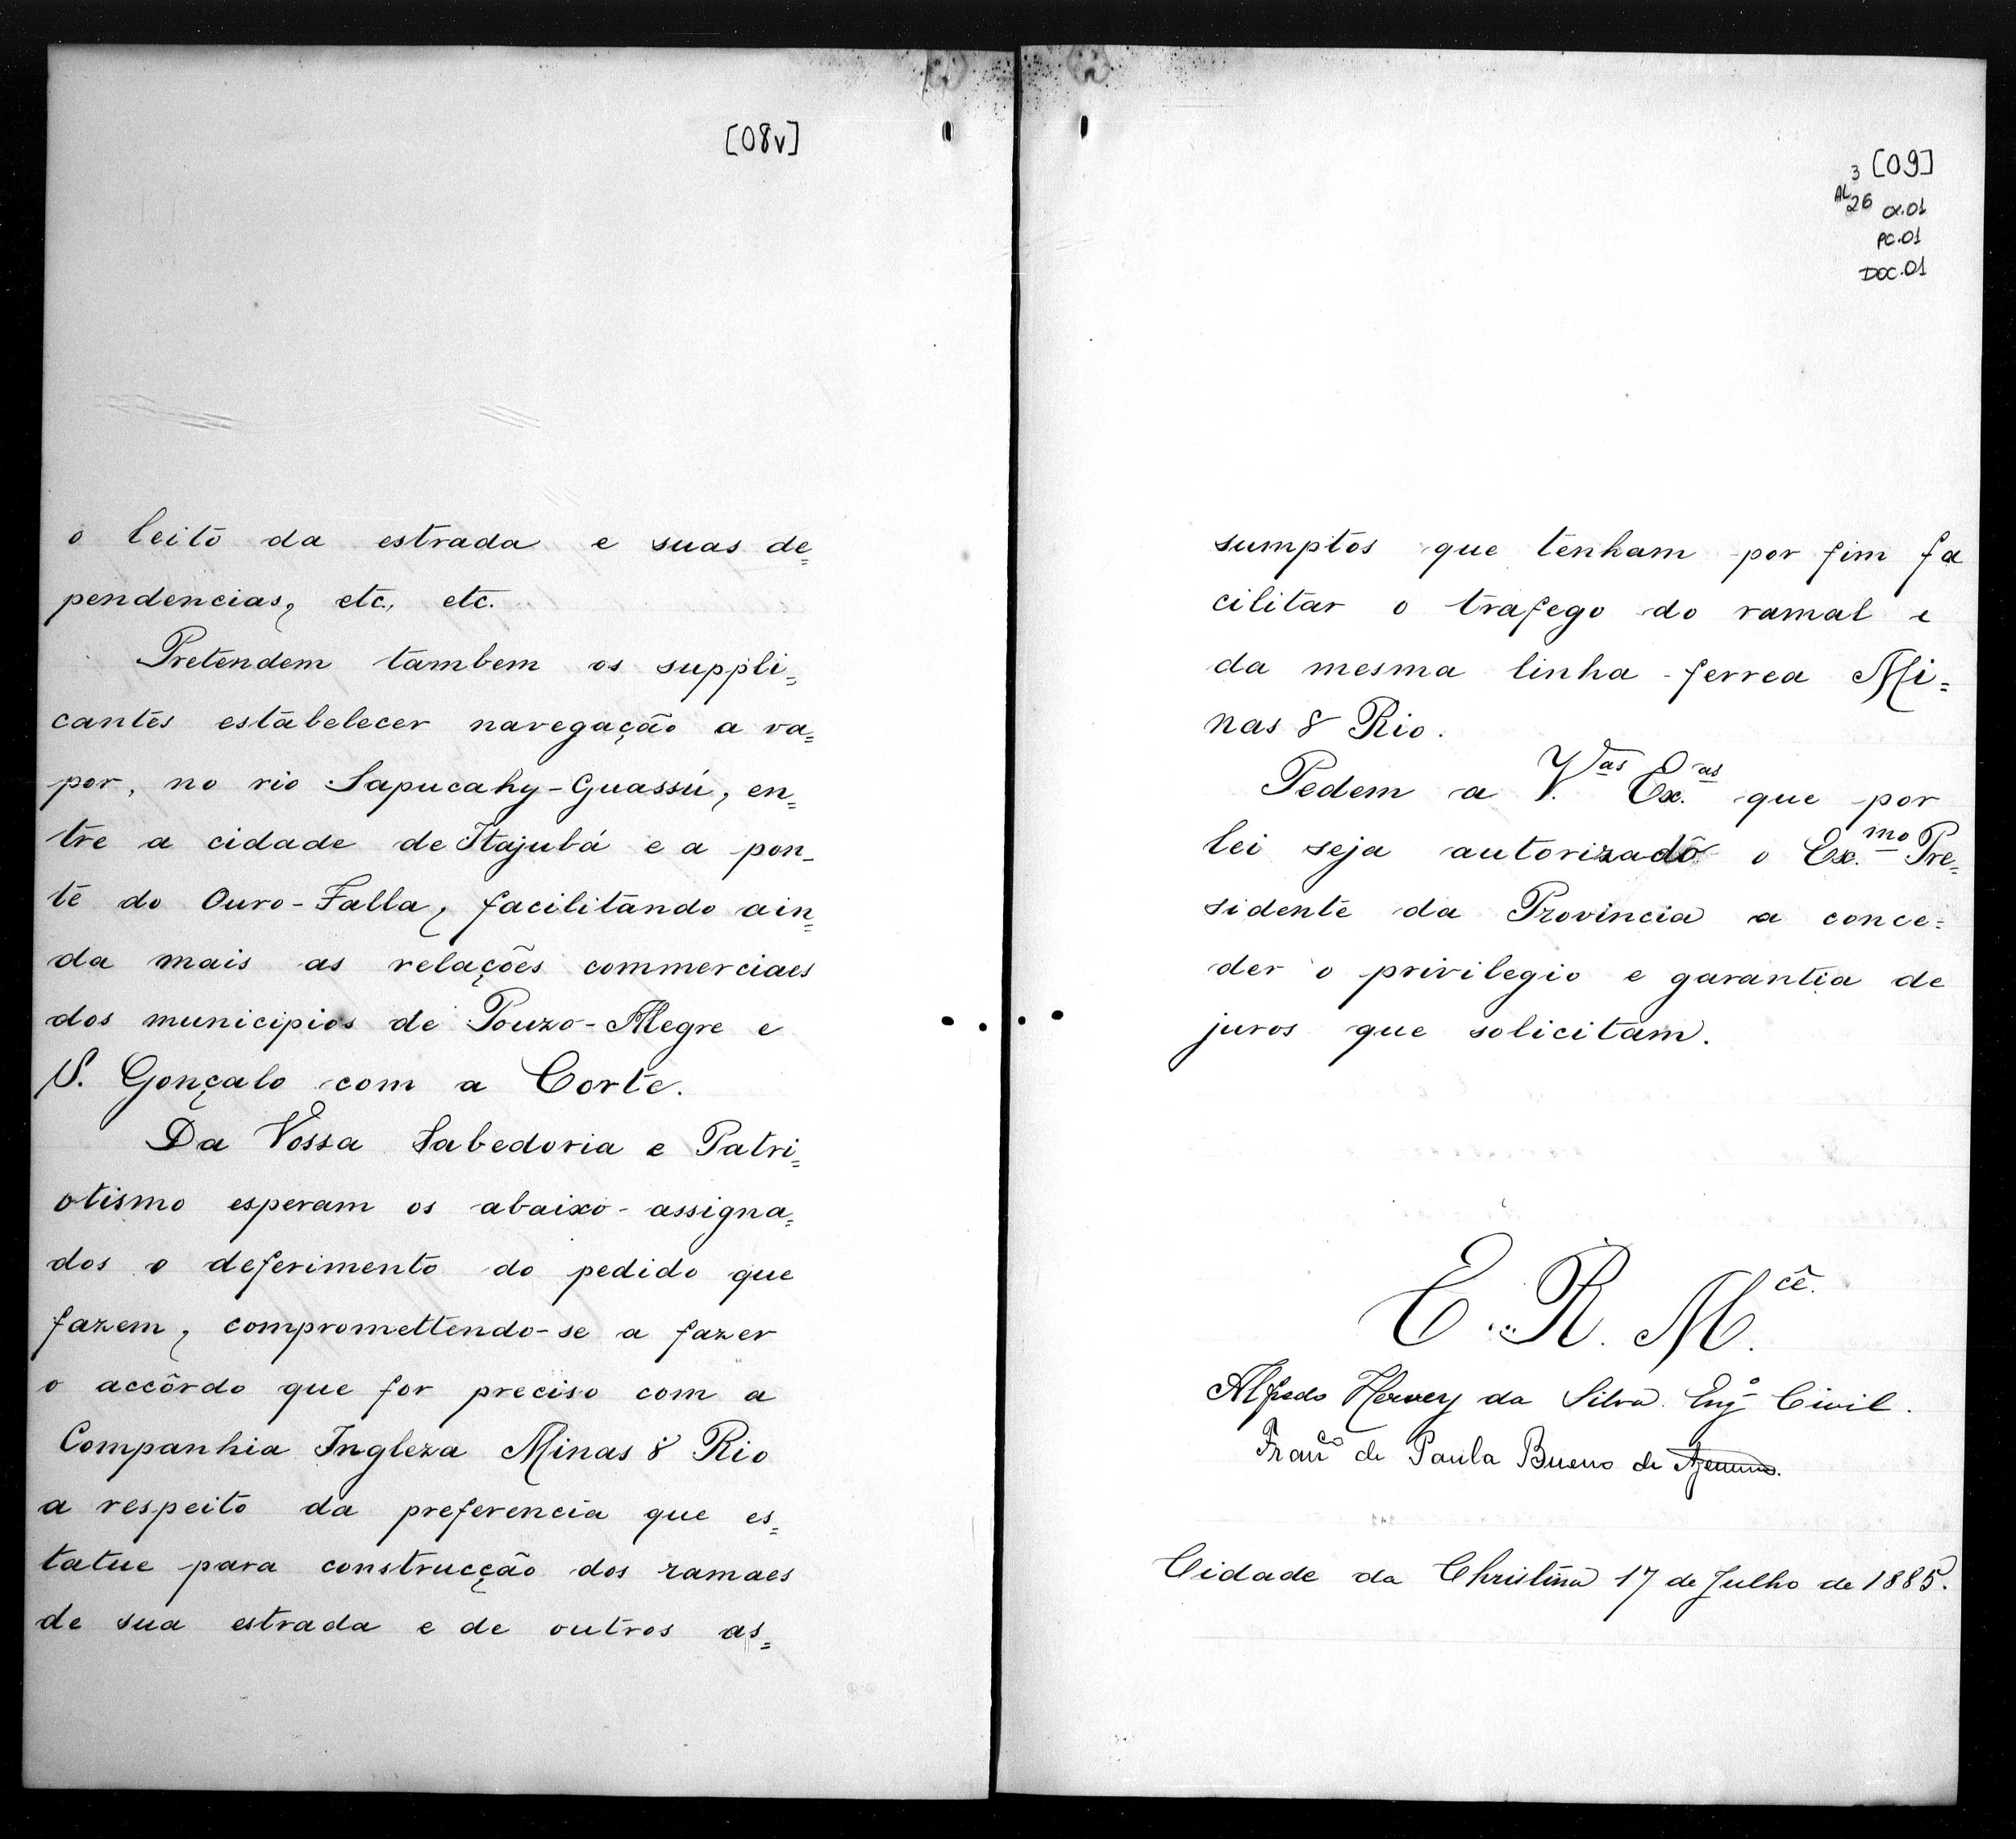 [08v]
o leito da estrada e suas de=
pendencias, etc., etc.
Pretendem tambem os suppli=
cantes estabelecer navegação a va=
por, no rio Sapucahy-Guassú, en=
tre a cidade de Itajubá e a pon-
te do Ouro-Falla, facilitando ain=
da mais as relações commerciaes
dos municipios de Pouzo-Alegre e
S. Gonçalo com a Corte.
Da Vossa Sabedoria e Patri=
otismo esperam os abaixo-assigna=
dos o deferimento do pedido que
fazem, compromettendo-se a fazer
o accôrdo que for preciso com a
Companhia Ingleza Minas & Rio
a respeito da preferencia que es=
tatue para construcção dos ramaes
de sua estrada e de outros as=
[09]
3
AL 26 CX.01
PC.01
DOC.01
sumptos que tenham por fim fa
cilitar o trafego do ramal e
da mesma linha ferrea Mi=
nas & Rio.
Pedem a V.as Ex.as que por
lei seja autorizado o Ex.mo Pre=
sidente da Provincia a conce=
der o privilegio e garantia de
juros que solicitam.
E. R. M.cê
Alfredo Hervey da Silva. Engº Civil.
Franco de Paula Bueno de
Cidade da Christina 17 de Julho de 1885.